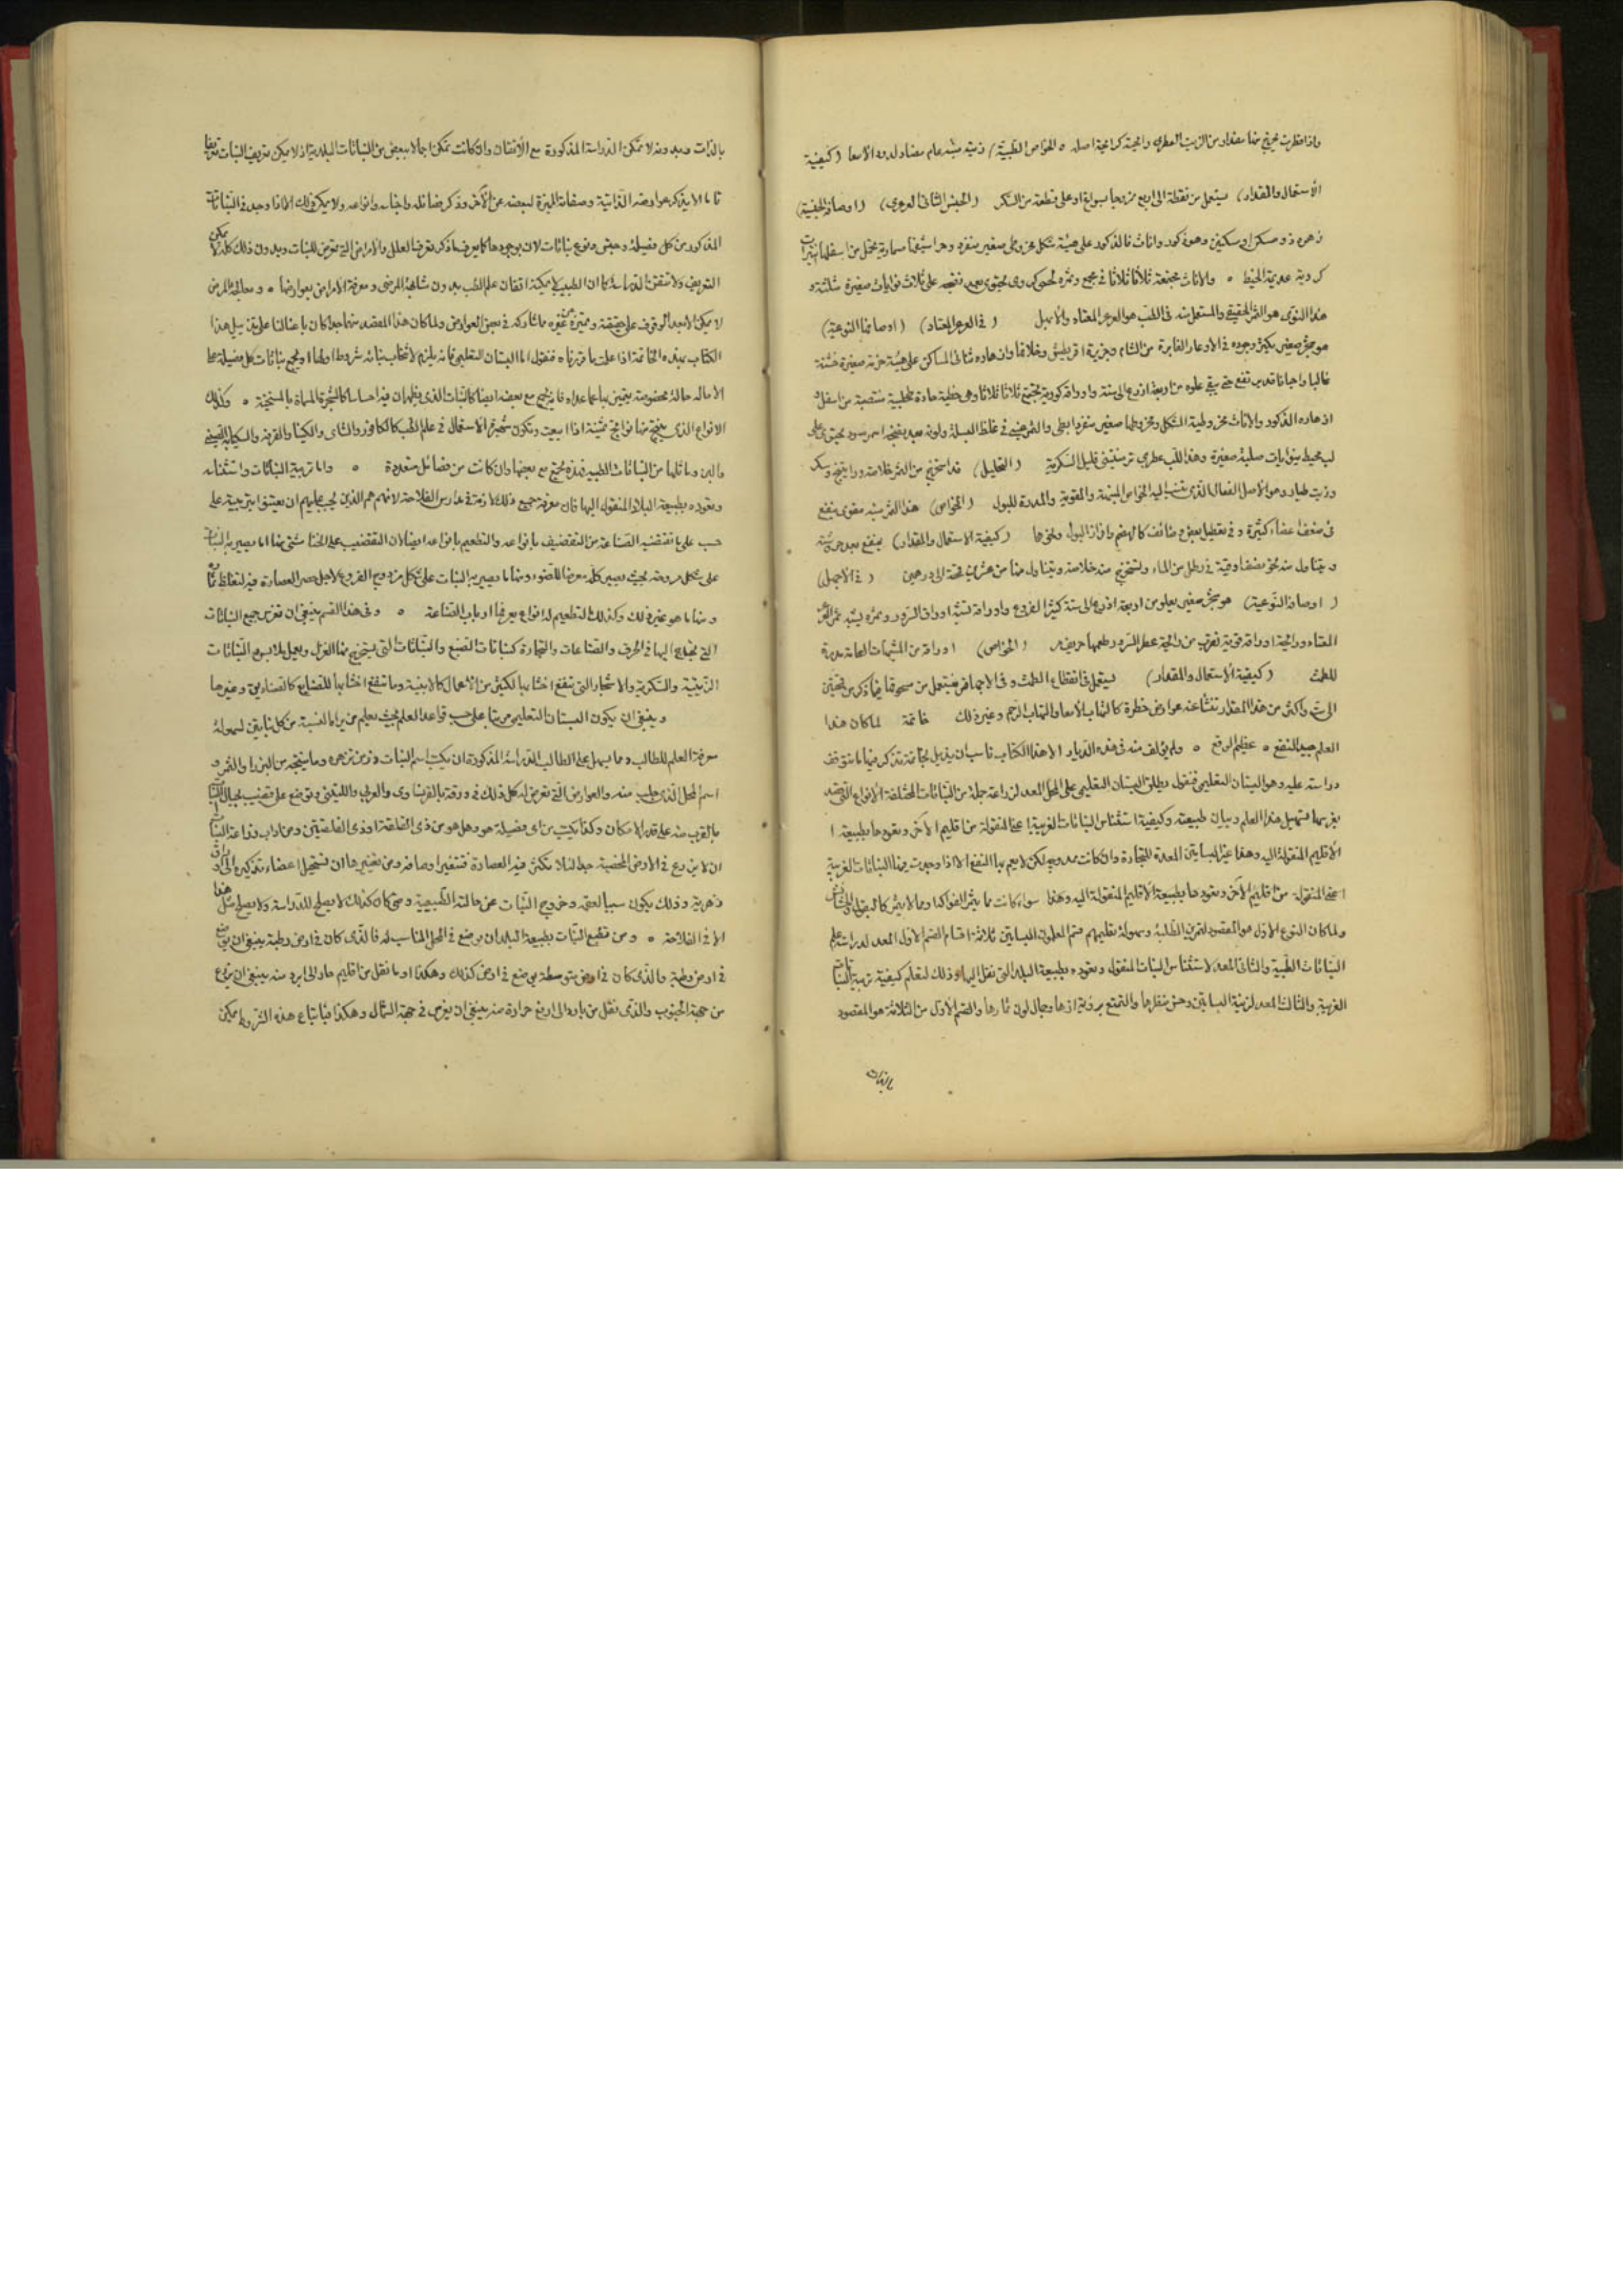 واذا قطرت يخرج منها مقدار من الزيت العطري رائحته كرائحة اصله ٥ الخواص الطبية) زيته منبه عام مضاد لدود الامعا (كيفية
الاستعمال والمقدار) يستعمل من نقطة الى اربع ممزوجا بسواغ او على قطعة من السكر (الجنس الثانى العرعرى) (اوصافه الجنسية)
زهره ذو مسكن او مسكنين وهو ذكور واناث فالذكور على هيئة شكل مخروطى صغير منفرد وحراشيفها مسمارية تحمل من اسفلها
كروية عديمة الخيط ٥ والاناث مجتمعة ثلاثا ثلاثا فى مجمع وثمره لحمى كروى يحتوى بعد نضجه على ثلاث نوايات صغيرة مثلثة و
هذا النوى هو الثمر الحقيقى والمستعمل منه فى الطب هو العرعر المعتاد والابهل (فى العرعر المعتاد) (اوصافها النوعية)
هو شجر صغير يكثر وجوده فى الاوعار الغابرة من الشام وجزيرة اقريطش وغلاقها وازهاره ثنائى المساكن على هيئة حزمة صغيرة خشنة
غالبا واحيانا قد يرتفع حتى يبقى علوه من اربعة اذرع الى ستة واوراقه كورية تجتمع ثلاثا ثلاثا وهى خطية حادة مخلبية منتصبة من اسفل و
ازهاره الذكور والاناث مخروطية الشكل ومخروطها صغير منفرد ابطى والثمر عنبى فى غلظ البسلة ولونه بعد نضجه اسمر مسود يحتوى على
لب محيط بنوايات صلبة صغيرة وهذا اللب عطرى ترمنتينى قليل السكرية (التحليل) قد استخرج من الثمر خلاصة وراتينج وسكر
وزيت طيار وهو الاصل الفعال الذى تنسب اليه الخواص المنبهة والمقوية والمدرة للبول (الخواص) هذا الثمر منبه مقوى ينفع
فى ضعف اعضاء كثيرة وفى تعطيل بعض وظائف كالهضم وافراز البول ونحوها (كيفية الاستعمال والمقدار) ينقع بعد هرسه
ويتناول منه نحو نصف اوقية فى رطل من الماء ويستخرج منه خلاصة ويتناول منها من عشرين قمحة الى درهمين (فى الابهل)
(اوصافه النوعية) هو شجر صغير يعلو من اربعة اذرع الى ستة كثير الفروع واوراقه تشبه اوراق السرو وثمره يشبه ثمر العرعر
المعتاد ورائحة اوراقه قوية تقرب من رائحة عطر السرو وطعمها حريف (الخواص) اوراقه من المنبهات العامة مدرة
للطمث (كيفية الاستعمال والمقدار) يستعمل فى انقطاع الطمث وفى الاجهاض فيستعمل من مسحوقها فيما ذكر من قمحتين
الى ست واكثر من هذا المقدار تنشأ عنه عوارض خطرة كالتهاب الامعا والتهاب الرحم وغير ذلك خاتمة لما كان هذا
العلم جيد النفع ٥ عظيم الوقع ٥ ولم يؤلف منه فى هذه الديار الا هذا الكتاب ناسب ان يذيل بخاتمة تذكر فيها ما تتوقف
دراسته عليه وهو البستان التعليمى فنقول يطلق البستان التعليمى على المحل المعد لزراعة جملة من النباتات المختلفة الانواع التى قصد
بغرسها تسهيل هذا العلم وبيان طبيعته وكيفية استئناس النباتات الغريبة اعنى المنقولة من اقليم لآخر وتعودها بطبيعة ا
الاقليم المنقولة اليه وهذا غير البساتين المعدة للتجارة وان كانت ممدوحة لكن لا يعم بها النفع الا اذا وجدت فيها النباتات الغريبة
اعنى المنقولة من اقليم لآخر وتعودها بطبيعة الاقليم المنقولة اليه وهذا سواء كانت مما يثمر الفواكه او مما لا يثمر
ولما كان النوع الاول هو المقصود لتمرين الطلبة وسهولة تعليمهم قسم المعلمون البساتين ثلاثة اقسام القسم الاول المعد لدراسة علم
النباتات الطبية والثانى المعد لاستئناس النبات المنقولة وتعوده بطبيعة البلد التى نقل اليها وذلك لتعلم كيفية تربية النباتات
الغريبة والثالث المعد لزينة البساتين وحسن منظرها والتمتع برؤية ازهارها وجمال لون ثمارها والقسم الاول من الثلاثة هو المقصود
بالذات
بالذات وبدونه لا تمكن الدراسة المذكورة مع الاتقان وان كانت تمكن اجمالا ببعض من النباتات البلدية اذ لا يمكن تعريف النبات تعريفا
تاما الا بذكر عوارضه الذاتية وصفاته المميزة لبعضه عن الآخر وذكر فصائله واجناسه وانواعه ولا يمكن ذلك الا اذا وجد فى النباتات
المذكور من كل فصيلة وجنس ونوع نباتات لان بوجودها كما يعرف ما ذكر تعرف العلل والامراض التى تعرض للنبات وبدون ذلك كله لا يمكن
التعريف ولا تتقن الدراسة كما ان الطبيب لا يمكنه اتقان علم الطب بدون مشاهدة المرضى ومعرفة الامراض بعوارضها ٥ ومعالجة المرض
لا يمكن الا بعد الوقوف على حقيقته وتمييزه عن غيره مما شاركه فى بعض العوارض ولما كان هذا المقصد مهما جدا كان باعثا لنا على تذييل هذا
الكتاب بهذه الخاتمة اذا علمت ما قررناه فنقول اما البستان التعليمى فانه يلزم لانتخاب نباته شروط اولها ان يجمع نباتات كل فصيلة على
الا ماله حالة مخصوصة يتميز بها عما عداه فانه يجمع مع بعضه ايضا كالنبات الذى يظهر ان فيه احساسا كالشجرة المسماة بالمستحية ٥ وكذلك
الانواع الذى ينتج منها نواتج ثمينة اذا ابيعت وتكون شهيرة الاستعمال فى علم الطب كالكافور والشاى والكينا والقرفة
والبن وما ماثلها من النباتات الطبية فهذه تجمع مع بعضها وان كانت من فصائل متعددة ٥ واما تربية النباتات واستئناسه
وتعوده بطبيعة البلاد المنقول اليها فان معرفة جميع ذلك لازمة فى مدارس الفلاحة لانهم هم الذين يجب عليهم ان يعتنوا بتربيته على
حسب ما تقتضيه الصناعة من التقضيب بانواعه والتطعيم بانواعه ايضا لان التقضيب على انحاء شتى منها ما يصير به النبات
على شكل مروحة بحيث يصير كله معرضا للضوء ومنها ما يصير به النبات على شكل مزدوج الفروع لاجل حصر العصارة فيه لتغلظ ثماره
ومنها ما هو غير ذلك وكذلك التطعيم له انواع يعرفها ارباب الصناعة ٥ وفى هذا القسم ينبغى ان تغرس جميع النباتات
التى يحتاج اليها فى الحرف والصناعات والتجارة كنباتات الصبغ والنباتات التى يستخرج منها الغزل ويعمل ملابس والنباتات
الزيتية والسكرية والاشجار التى تنفع اخشابها لكثير من الاعمال كالابنية وما تنفع اخشابها للصنايع كالصناديق وغيرها
وينبغى ان يكون البستان التعليمى مرتبا على حسب قواعد العلم بحيث يعلم من يراه النسبة من كل نباتين لسهولة
معرفة العلم للطالب ومما يسهل على الطالب الدراسة المذكورة ان يكتب اسم النبات وزمن تزهره وما ينتجه من البزر او الثمر و
اسم المحل الذى جلب منه والعوارض التى تعرض له كل ذلك فى ورقة بالفرنساوى والعربى واللاتينى وتوضع على قضيب بحيال النبات
بالقرب منه على قدر الامكان وكذا يكتب من اى فصيلة هو وهل هو من ذى الفلقة او ذى الفلقتين ومن اداب زراعة النبات
ان لا يزرع فى الارض المخصبة جدا لئلا تكثر فيه العصارة فتتغير اوصافه ومن تغييرها ان تستحيل اعضاء تذكيره الى اوراق
زهرية وذلك يكون سببا لعقمه وخروج النبات عن حالته الطبيعية ومتى كان كذلك لا يصلح للدراسة ولا يصلح مثل هذا
الا فى الفلاحة ٥ ومن تطبع النبات بطبيعة البلد ان يوضع فى المحل المناسب له فالذى كان فى ارض رطبة ينبغى ان يوضع
فى ارض رطبة والذى كان فى ارض متوسطة يوضع فى ارض كذلك وهكذا او ما نقل من اقليم حار الى ابرد منه ينبغى ان يزرع
من جهة الجنوب والذى نقل من بارد الى ارفع حرارة منه ينبغى ان يغرس فى جهة الشمال وهكذا فباتباع هذه الشروط يمكن